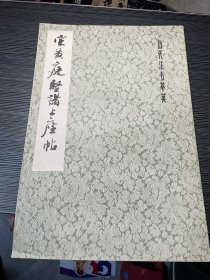 历代法书萃英
宋黄庭坚诸上座帖